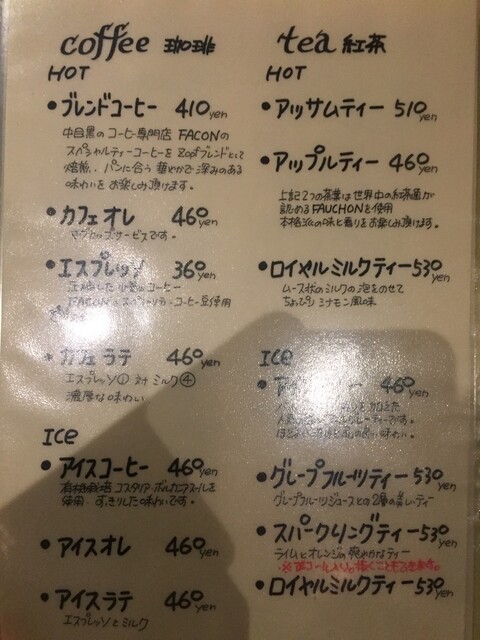 coffee 珈琲
HOT
• ブレンドコーヒー 410yen
中目黒の コーヒー専門店 FACONの
スペシャルティーコーヒーを Zopfブレンドとして
焙煎. パンに合う 華やかで深みのある
味わいを お楽しみ頂けます。
• カフェオレ 460yen
マグカップサービスです。
• エスプレッソ 360yen
コーヒー
FACONの コーヒー豆使用
• カフェラテ 460yen
エスプレッソ① 対 ミルク④
濃厚な味わい
Ice
• アイスコーヒー 460yen
有機栽培 コスタリカ
使用. すっきりした味わいです。
• アイスオレ 460yen
• アイスラテ 460yen
エスプレッソとミルク
tea 紅茶
HOT
• アッサムティー 510yen
• アップルティー 460yen
上記2つの茶葉は世界中の紅茶通が
認めるFAUCHONを使用
本格派の味と香りをお楽しみ頂けます。
• ロイヤルミルクティー530yen
ムース状のミルクの泡をのせて
ちょっぴりシナモン風味
Ice
• 460yen
• グレープフルーツティー530yen
グレープフルーツジュースとの2層の美しいティー
• スパークリングティー530yen
ライムとオレンジの爽やかなティー
• ロイヤルミルクティー530yen